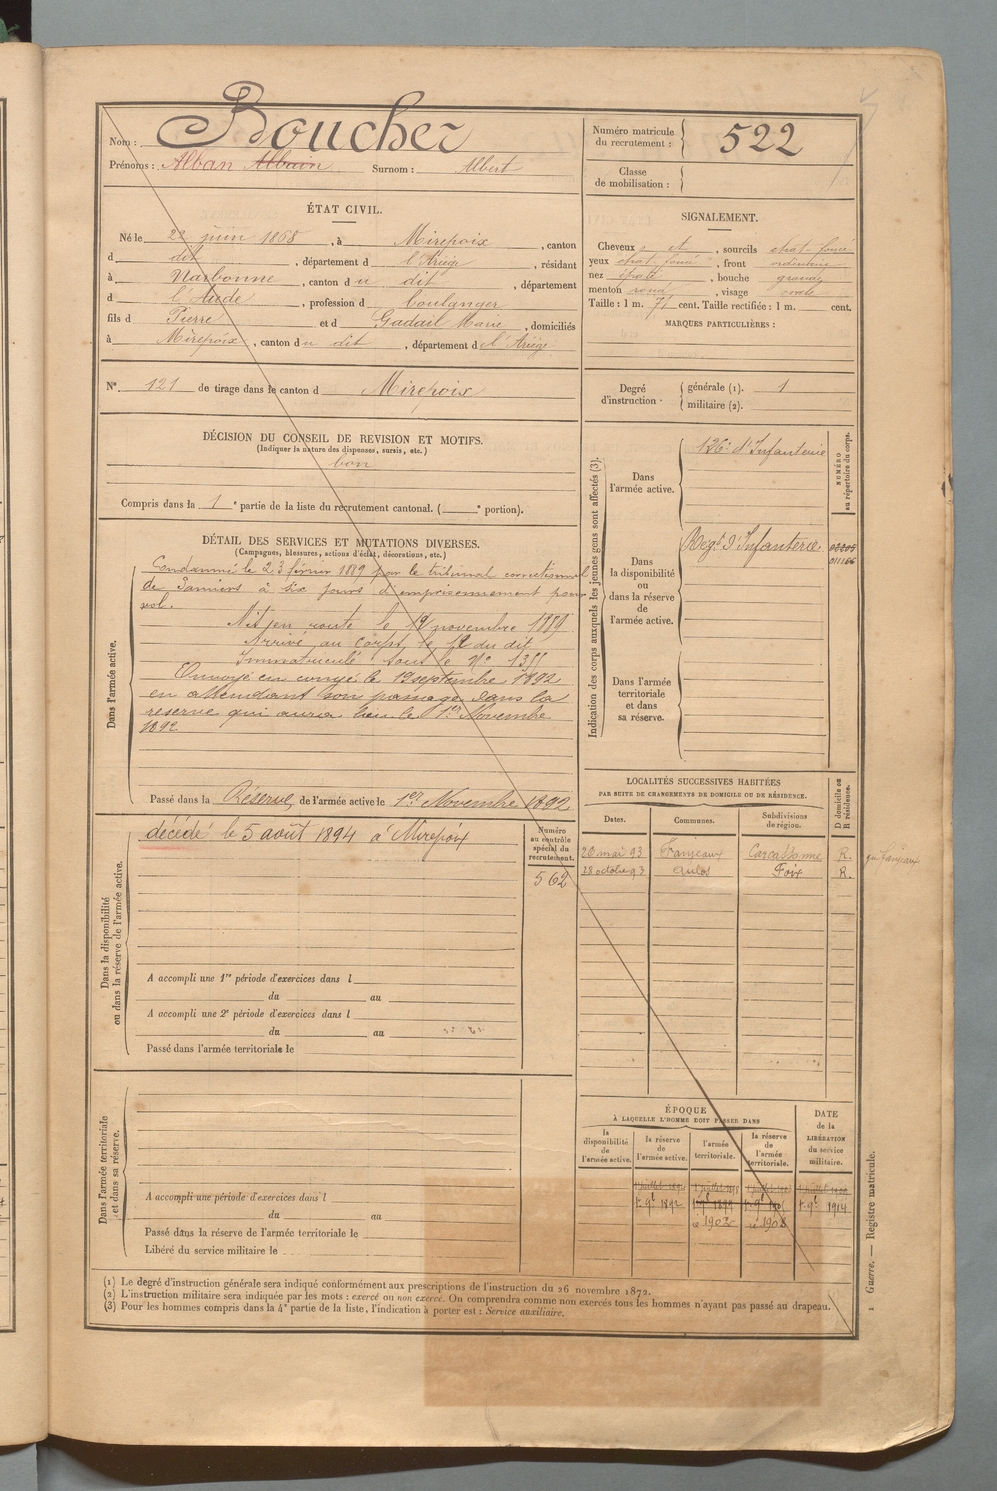 Nom : Boucher
Prénoms : Alban Albain Surnom : Albert
Numéro matricule du recrutement : 522
Classe de mobilisation :
ÉTAT CIVIL.
Né le 22 juin 1868, à Mirepoix, canton
d dit, département d l'Ariège, résidant
à Narbonne, canton du dit, département
d l'Aude, profession d boulanger
fils d Pierre et d Gadail Marie, domiciliés
à Mirepoix, canton du dit, département d l'Ariège
SIGNALEMENT.
Cheveux et, sourcils chat-foncé
yeux chat foncé, front ordinaire
nez épaté, bouche grande
menton rond, visage ovale
Taille : 1 m. 71 cent. Taille rectifiée : 1 m. cent.
MARQUES PARTICULIÈRES :
N° 121 de tirage dans le canton d Mirepoix
Degré d'instruction. générale (1). 1
militaire (2).
DÉCISION DU CONSEIL DE REVISION ET MOTIFS.
(Indiquer la nature des dispenses, sursis, etc.)
bon
Compris dans la 1e partie de la liste du recrutement cantonal. ( e portion).
DÉTAIL DES SERVICES ET MUTATIONS DIVERSES.
(Campagnes, blessures, actions d'éclat, décorations, etc.)
Dans l'armée active.
Condamné le 23 février 1889 par le tribunal correctionnel
de Pamiers à six jours d'emprisonnement pour
vol.
Mis en route le 12 novembre 1889.
Arrivé au corps le 12 du dit
Immatriculé sous le N° 1355
Envoyé en congé le 19 septembre 1892
en attendant son passage dans la
réserve qui aura lieu le 1er Novembre
1892
Passé dans la Réserve de l'armée active le 1er Novembre 1892
Indication des corps auxquels les jeunes gens sont affectés (3).
NUMÉRO au répertoire du corps.
Dans l'armée active.
126e d'Infanterie
Dans la disponibilité ou dans la réserve de l'armée active.
Regt d'Infanterie
011166
Dans l'armée territoriale et dans sa réserve.
LOCALITÉS SUCCESSIVES HABITÉES
PAR SUITE DE CHANGEMENTS DE DOMICILE OU DE RÉSIDENCE.
Dates. Communes. Subdivisions de région. D domicile ou R résidence.
20 mai 93 Fanjeaux Carcassonne R.
28 octobre 93 Aulos Foix R.
Dans la disponibilité ou dans la réserve de l'armée active.
décédé le 5 août 1894 à Mirepoix
Numéro au contrôle spécial du recrutement.
562
A accompli une 1re période d'exercices dans l
du au
A accompli une 2e période d'exercices dans l
du au
Passé dans l'armée territoriale le
Dans l'armée territoriale et dans sa réserve.
A accompli une période d'exercices dans l
du au
Passé dans la réserve de l'armée territoriale le
Libéré du service militaire le
ÉPOQUE
À LAQUELLE L'HOMME DOIT PASSER DANS
la disponibilité de l'armée active. la réserve de l'armée active. l'armée territoriale. la réserve de l'armée territoriale. DATE de la LIBÉRATION du service militaire.
1. 9bre 1892 1. 9bre 1899 1. 9bre 1914
1902 1908
(1) Le degré d'instruction générale sera indiqué conformément aux prescriptions de l'instruction du 26 novembre 1872.
(2) L'instruction militaire sera indiquée par les mots : exercé ou non exercé. On comprendra comme non exercés tous les hommes n'ayant pas passé au drapeau.
(3) Pour les hommes compris dans la 4e partie de la liste, l'indication à porter est : Service auxiliaire.
1 Guerre. — Registre matricule.